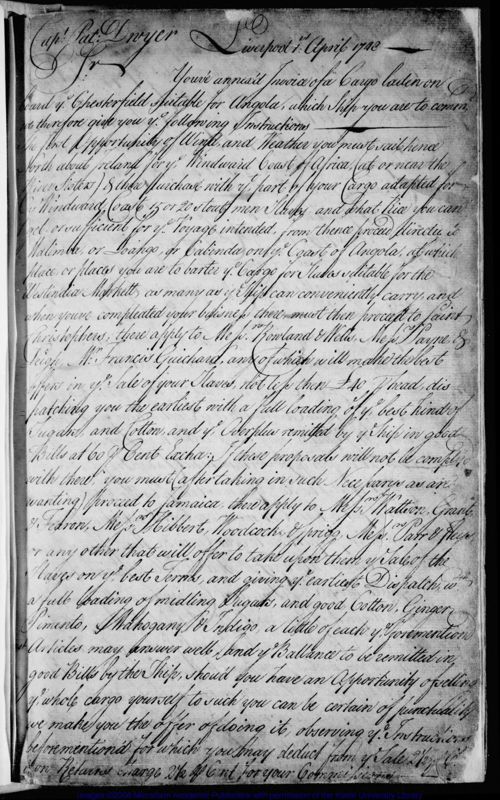 Capt. Pat: Dwyer Liverpool April 1743
Sr.
Youve annex'd Invoice of a Cargo laden on
board ye Chesterfield suitable for Angola, which Ship you are to comm
we therefore give you ye following Instructions
The first Opportunity of Wind and Weather you must sail hence
North about Ireland for ye Windward Coast of Africa, (at or near the
River Sestos) & there purchase with ye part of your Cargo adapted for
ye Windward Coast 15 or 20 stout men Slaves and what Rice you can
get, or sufficient for ye Voyage intended, from thence proceed directly to
Malimba, or Loango, or Cabinda on ye Coast of Angola, at which
place or places you are to barter ye Cargo for Slaves suitable for the
Westindia Markett, as many as ye Ship can conveniently carry, and
when youve compleated your bussiness there must then proceed to Saint
Christophers, there apply to Messrs. Rowland & Wells, Messrs. Payne &
Leigh, Mr. Francis Guichard, any of which will make the best
offers in ye Sale of your Slaves, not less then £40 head, dis
patching you the earliest with a full loading of ye best kind of
Sugars, and Cotton, and ye Overplus remitted by ye Ship in good
Bills at 60 Cent Excha: if those proposals will not be comply'd
with there, you must (after taking in such Necessarys as are
wanting) proceed to Jamaica, then apply to Messrs. Watson, Grant
& Fearon, Messrs. Hibbert, Woodcock, & Sprigg, Messrs.
or any other that will offer to take upon them ye Sale of the
Slaves on ye best terms, and giving ye earliest Dispatch, w
a full loading of midling Sugars, and good Cotton, Ginger
Pimento, Mahogany & Indigo, a little of each ye foremention'd
Articles may answer well, and ye Ballance to be remitted in
good Bills by the Ship, shoud you have an Opportunity of selling
ye whole cargo yourself to such you can be certain of punctuality
we make you the offer of doing it, observing ye Instructions
beforemention'd for which you may deduct from ye Sale
Returns charge Cent for your